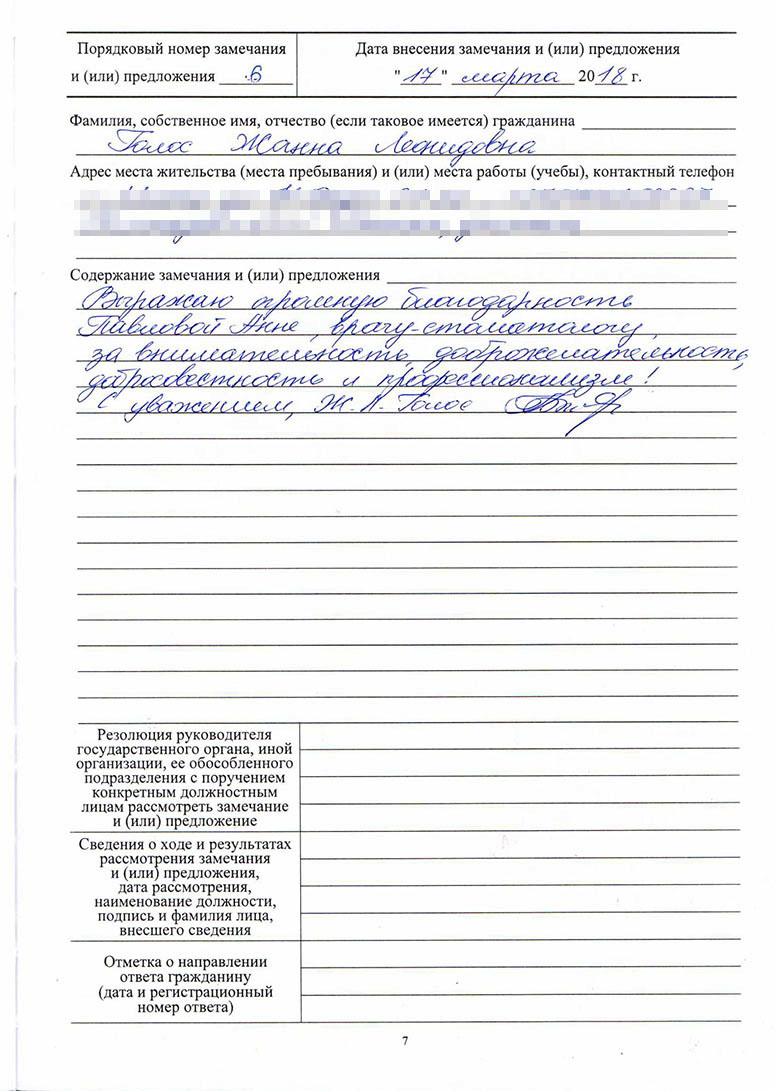 Порядковый номер замечания
и (или) предложения 6
Дата внесения замечания и (или) предложения
"17" марта 2018 г.
Фамилия, собственное имя, отчество (если таковое имеется) гражданина
Голос Жанна Леонидовна
Адрес места жительства (места пребывания) и (или) места работы (учебы), контактный телефон
Содержание замечания и (или) предложения
Выражаю огромную благодарность
Павловой Анне, врачу-стоматологу,
за внимательность, доброжелательность,
добросовестность и профессионализм!
С уважением, Ж.Л. Голос
Резолюция руководителя
государственного органа, иной
организации, ее обособленного
подразделения с поручением
конкретным должностным
лицам рассмотреть замечание
и (или) предложение
Сведения о ходе и результатах
рассмотрения замечания
и (или) предложения,
дата рассмотрения,
наименование должности,
подпись и фамилия лица,
внесшего сведения
Отметка о направлении
ответа гражданину
(дата и регистрационный
номер ответа)
7